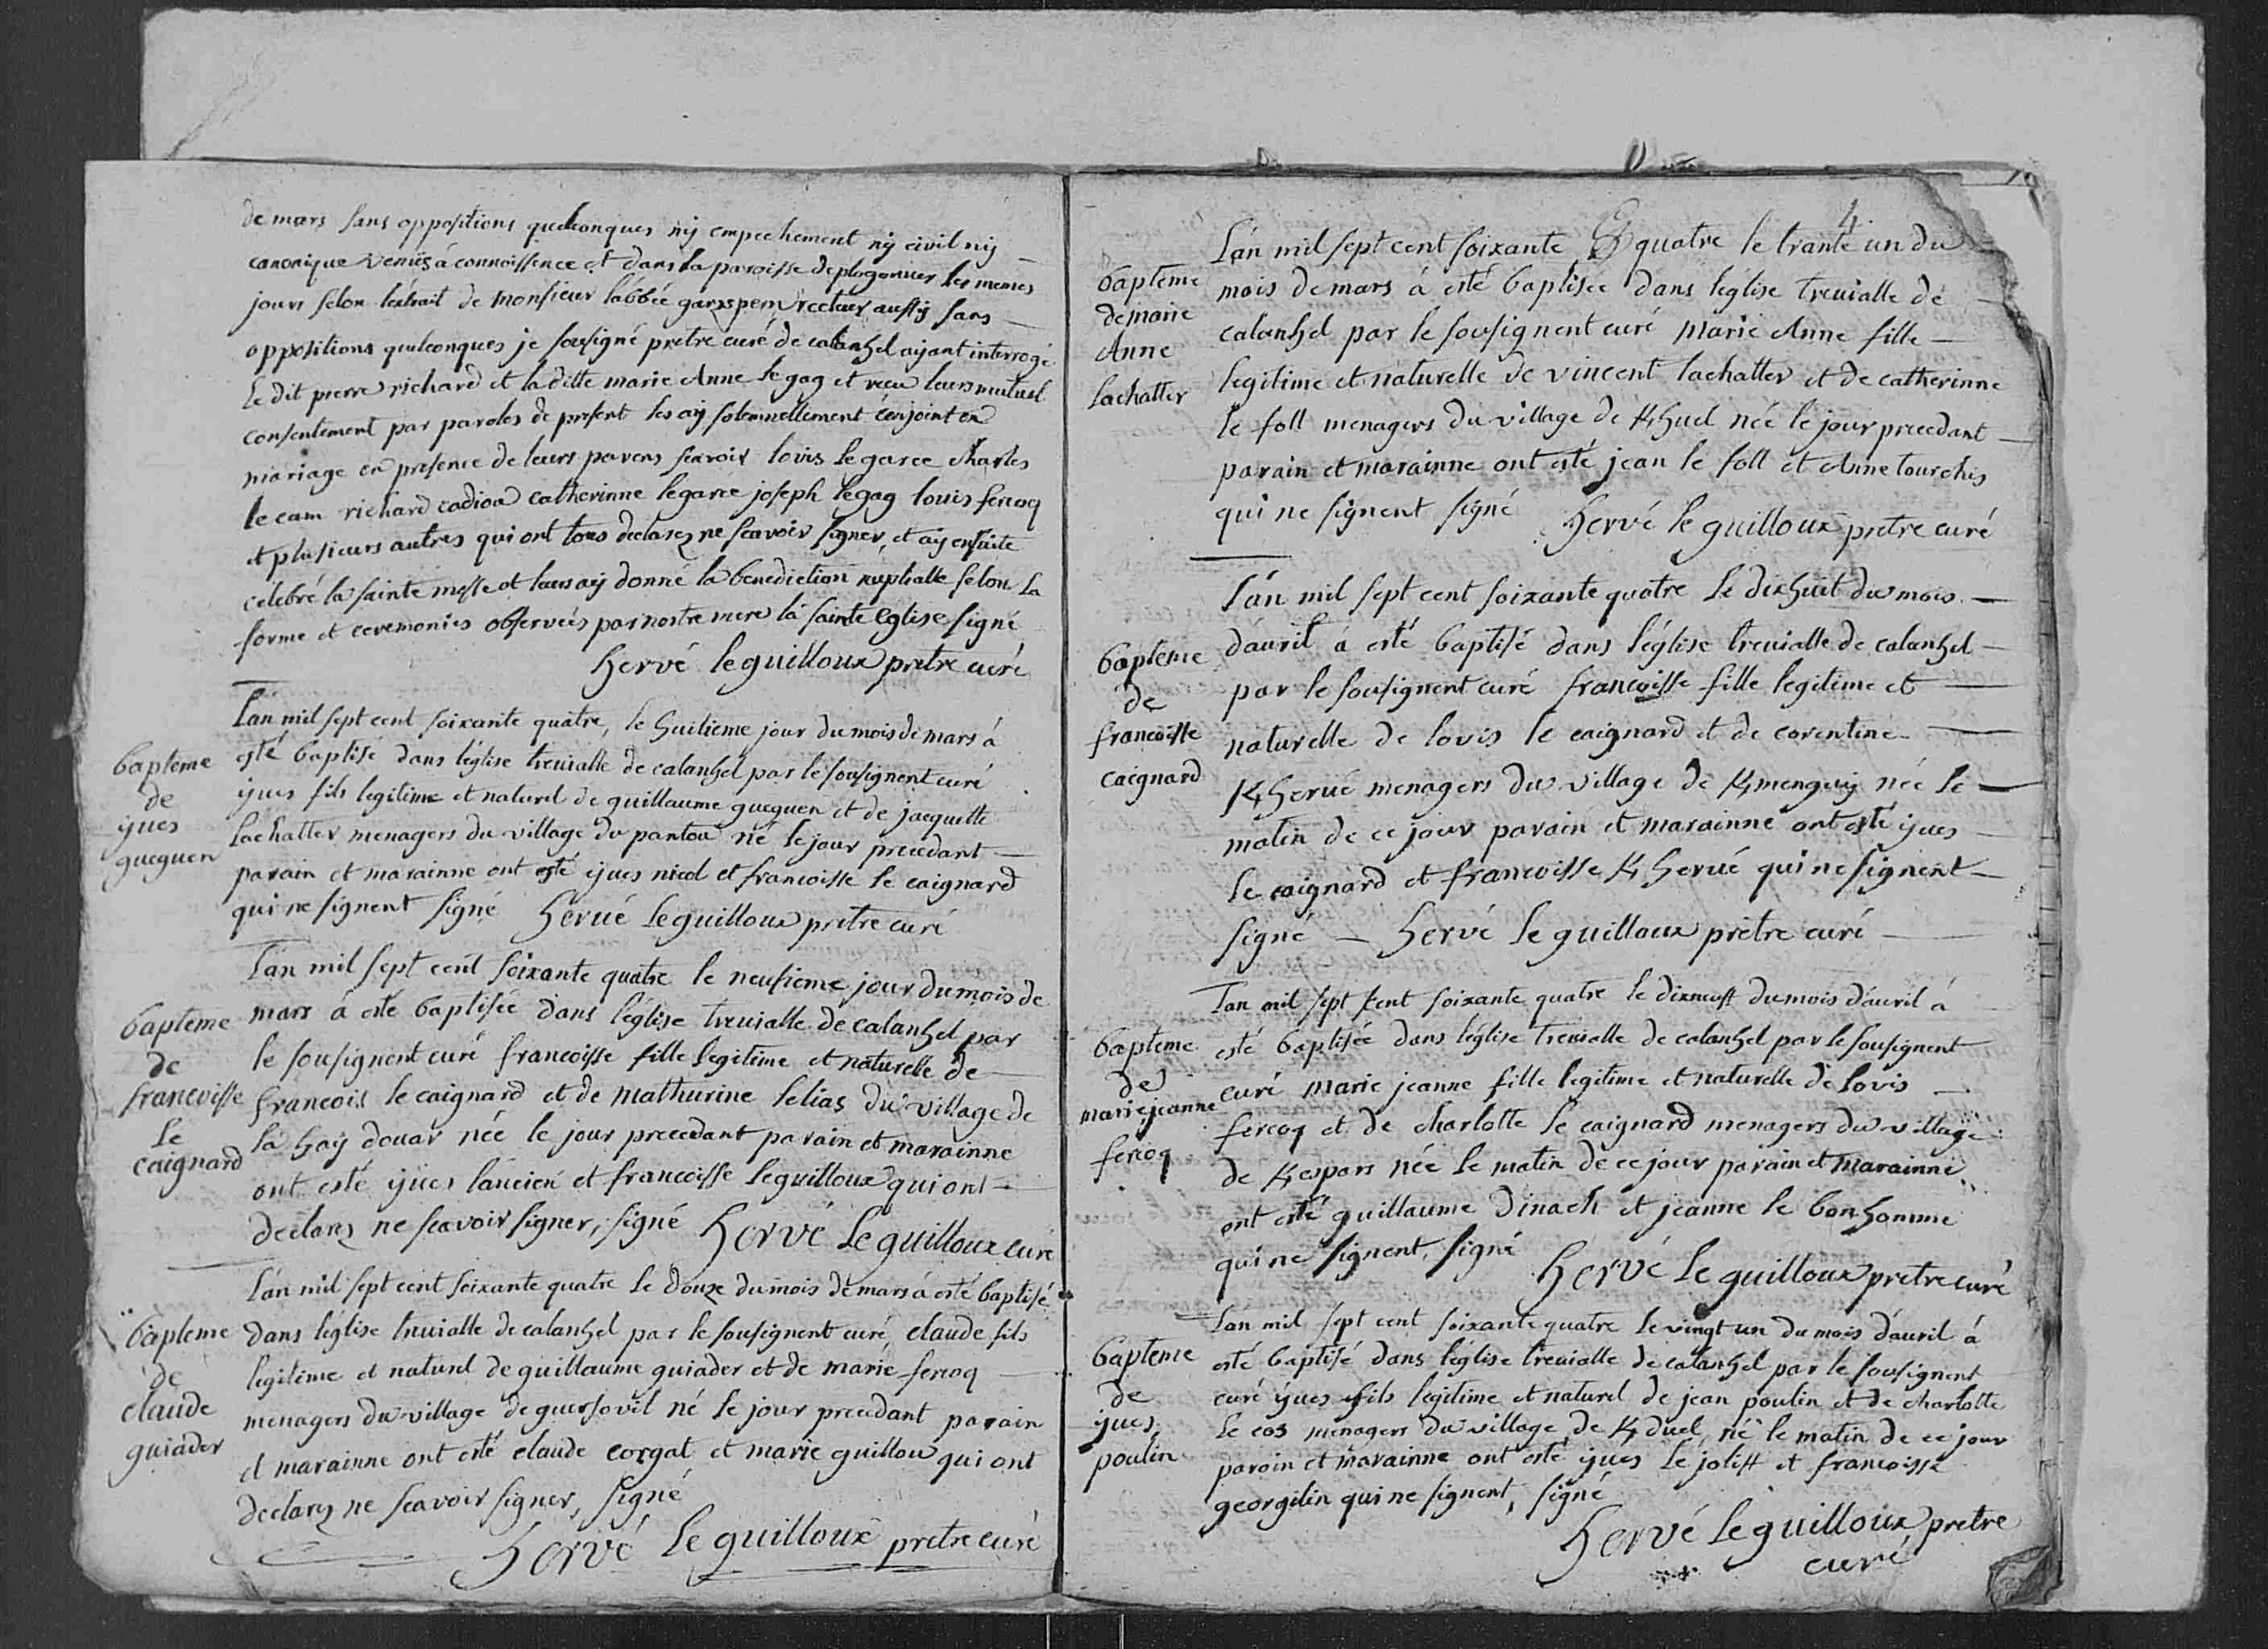 de mars sans oppositions quelconques nÿ empechement nÿ civil nÿ
canonique venües à connoissence et dans la paroisse de plogonver les memes
jours selon l'extrait de monsieur l'abbée garzspern recteur aussÿ sans
oppositions quelconques je sousigné pretre curé de calanhel aÿant interrogé
le dit pierre richard et la ditte marie Anne le gag et receu leurs mutuel
consentement par paroles de present les aÿ solemnellement conjoint en
mariage en presence de leurs parens scavoir lovis le garee charles
le cam richard cadiou catherinne legaree joseph legag louis fercoq
et plusieurs autres qui ont tous declarez ne scavoir signer, et aÿ ensuite
celebré la sainte messe et leurs aÿ donné la benediction nuptialle selon la
forme et ceremonies observeés par nostre mere la sainte Eglise signé
hervé le guilloux pretre curé
bapteme
de
ÿves
gueguen
L'an mil sept cent soixante quatre, le huitieme jour du mois de mars à
esté baptisé dans l'eglise treuialle de calanhel par le sousignent curé
ÿues fils legitime et naturel de guillaume gueguen et de jacquette
lachatter menagers du village du pantou né le jour precedant
parain et marainne ont esté ÿues nicol et francoisse le caignard
qui ne signent signé hervé le guilloux pretre curé
bapteme
de
francoisse
le
caignard
L'an mil sept cent soixante quatre le neufieme jour du mois de
mars à esté baptisée dans l'eglise treuialle de calanhel par
le sousignent curé francoisse fille legitime et naturelle de
francois le caignard et de mathurine lelias du village de
la haÿ douar née le jour precedant parain et marainne
ont esté ÿues l'ancien et francoisse le guilloux qui ont
declarez ne scavoir signer, signé hervé Le guilloux curé
bapteme
de
claude
guiader
L'an mil sept cent soixante quatre le douze du mois de mars à esté baptisé
dans l'eglise treuialle de calanhel par le sousignent curé claude fils
legitime et naturel de guillaume guiader et de marie fercoq
menagers du village de guersovil né le jour precedant parain
et marainne ont esté claude corgat et marie guillou qui ont
declarez ne scavoir signer, signé
hervé le guilloux pretre curé
4
bapteme
de marie
Anne
lachatter
L'an mil sept cent soixante & quatre le trante un du
mois de mars à esté baptisée dans l'eglise treuialle de
calanhel par le sousignent curé marie Anne fille
legitime et naturelle de vincent lachatter et de catherinne
le foll menagers du village de Khuel née le jour precedant
parain et marainne ont esté jean le foll et Anne tourches
qui ne signent signé hervé le guilloux pretre curé
bapteme
de
francoisse
caignard
L'an mil sept cent soixante quatre le dixhuit du mois
d'auril à esté baptisé dans l'eglise treuialle de calanhel
par le sousignent curé francoisse fille legitime et
naturelle de lovis le caignard et de corentine
Kherué menagers du village de Kmenguÿ née le
matin de ce jour parain et marainne ont esté ÿues
le caignard et francoisse Kherué qui ne signent
signé hervé le guilloux pretre curé
bapteme
de
marie jeanne
fercoq
L'an mil sept cent soixante quatre le dixneuff du mois d'auril à
esté baptisée dans l'eglise treuialle de calanhel par le sousignent
curé marie jeanne fille legitime et naturelle de lovis
fercoq et de charlotte le caignard menagers du village
de Kespars née le matin de ce jour parain et marainne
ont esté guillaume dinach et jeanne le bonhomme
qui ne signent, signé hervé le guilloux pretre curé
bapteme
de
ÿues
poulin
L'an mil sept cent soixante quatre le vingt un du mois d'auril à
esté baptisé dans l'eglise treuialle de calanhel par le sousignent
curé ÿues fils legitime et naturel de jean poulin et de charlotte
le cos menagers du village de Kduel né le matin de ce jour
parain et marainne ont esté ÿues le joliff et francoisse
georgelin qui ne signent, signé
hervé le guilloux pretre
curé